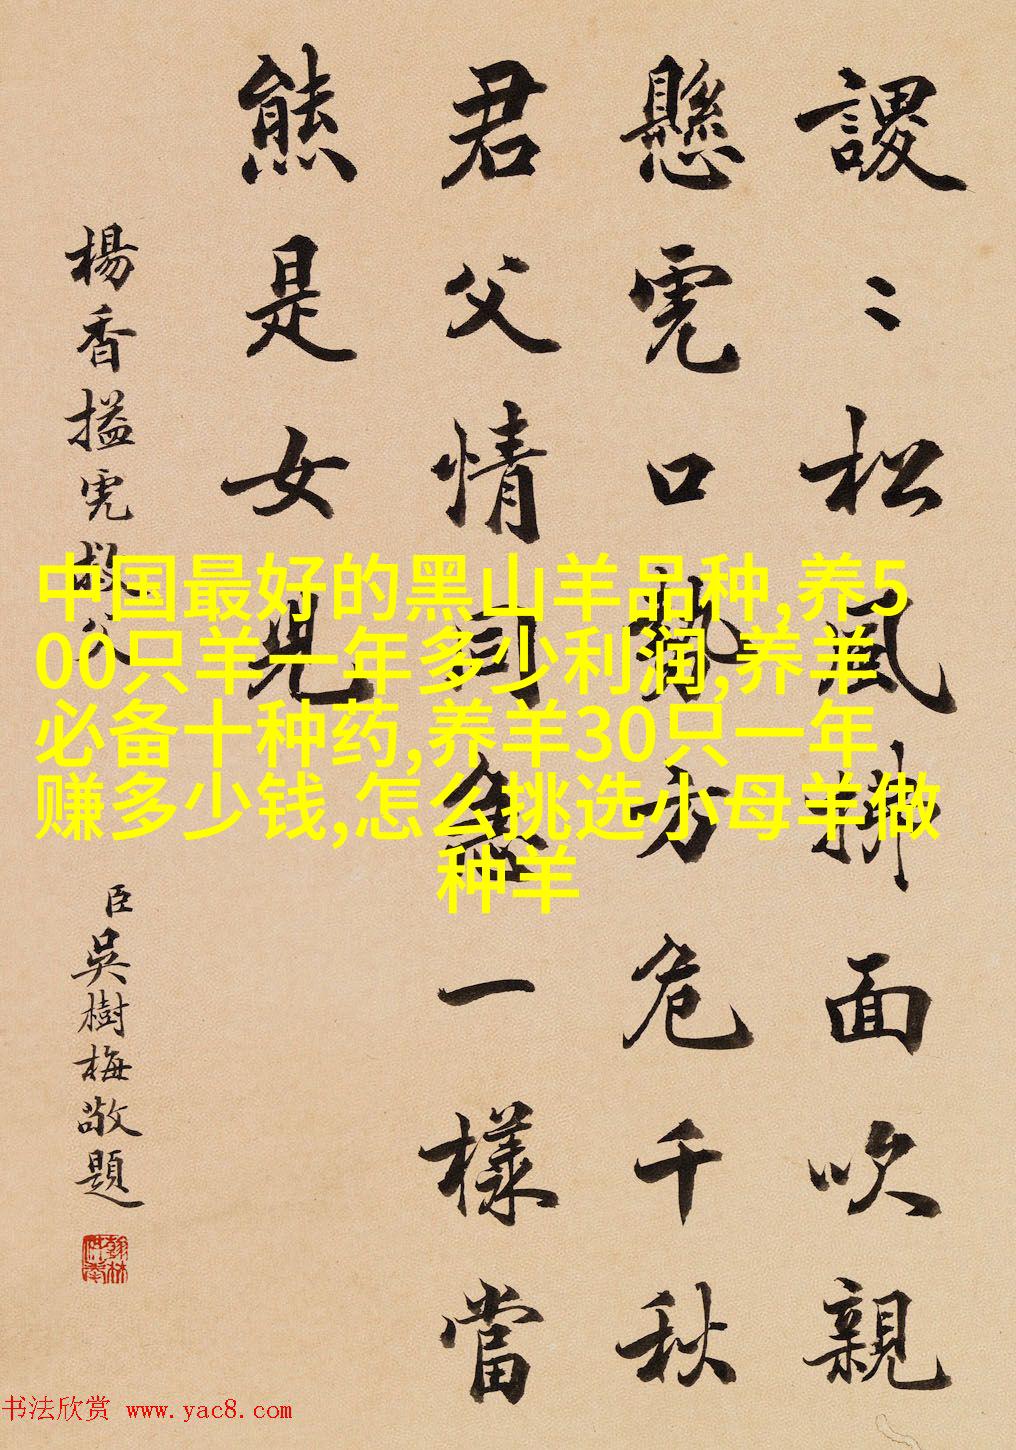 謖〻松風拂面吹親
懸虎口勢方危千秋
君父情同急一樣當
熊是女兒
楊香搤虎救父 臣吳樹梅敬題
翰林供奉
中国最好的黑山羊品种,养5
00只羊一年多少利润,养羊
必备十种药,养羊30只一年
赚多少钱,怎么挑选小母羊做
种羊
书法欣赏 www.yac8.com